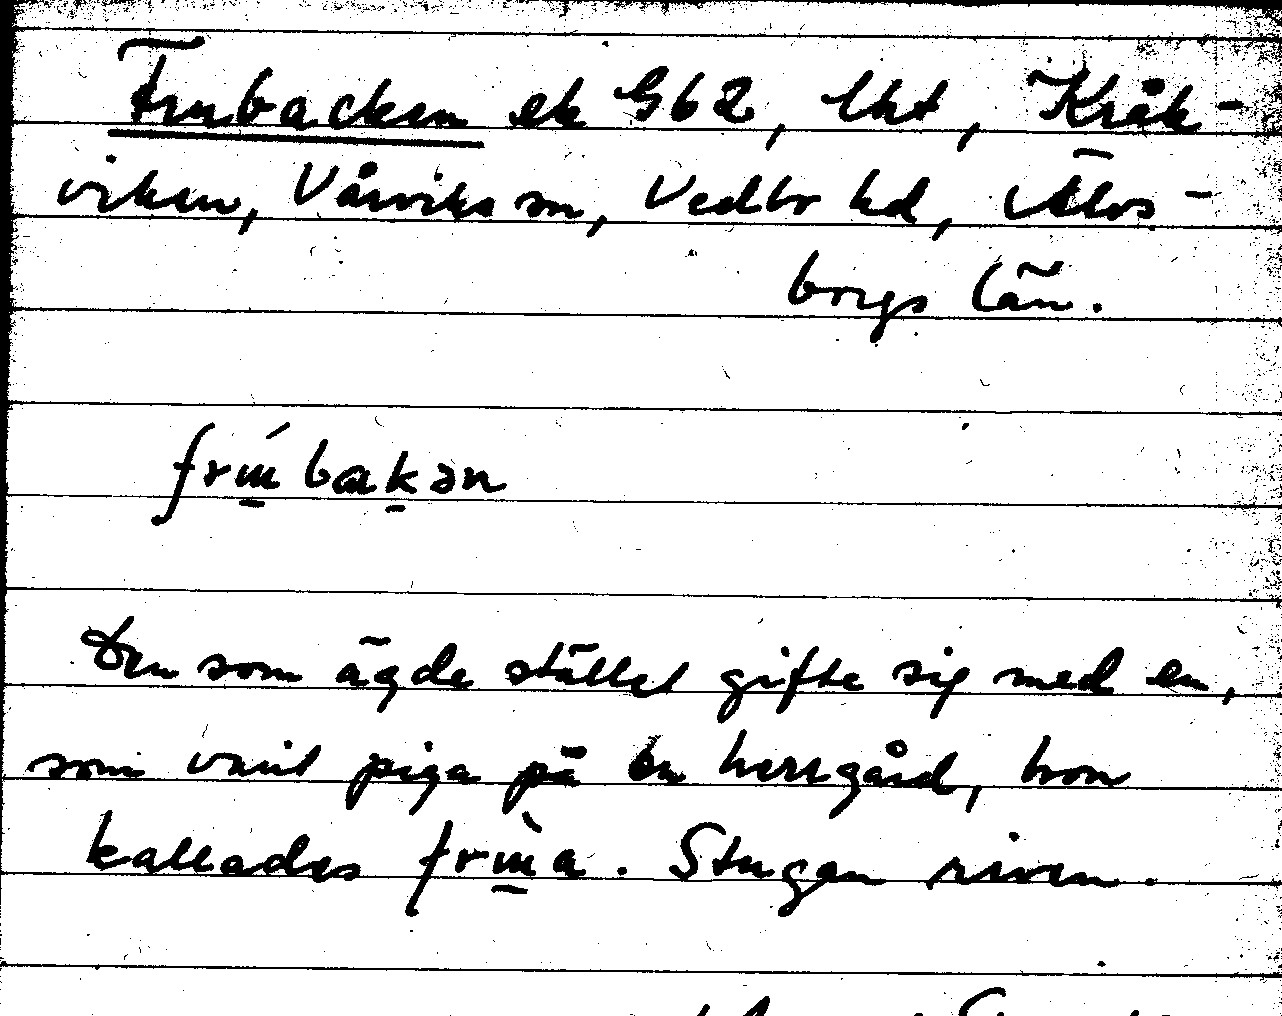 Frubacken ek G62, lht, Kråk-
viken, Vårviks sn, Vedbo hd, Älvs-
borgs län.
frɯ́bakən
Den som ägde stället gifte sig med en,
som varit piga på en herrgård, hon
kallades frɯ̀a. Stugan riven.